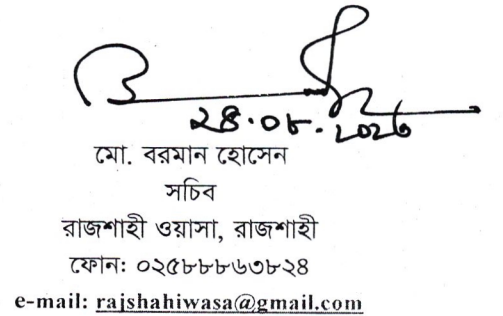 ২৪.০৮.২০২৩
মো. বরমান হোসেন
সচিব
রাজশাহী ওয়াসা, রাজশাহী
ফোন: ০২৫৮৮৮৬৩৮২৪
e-mail: rajshahiwasa@gmail.com